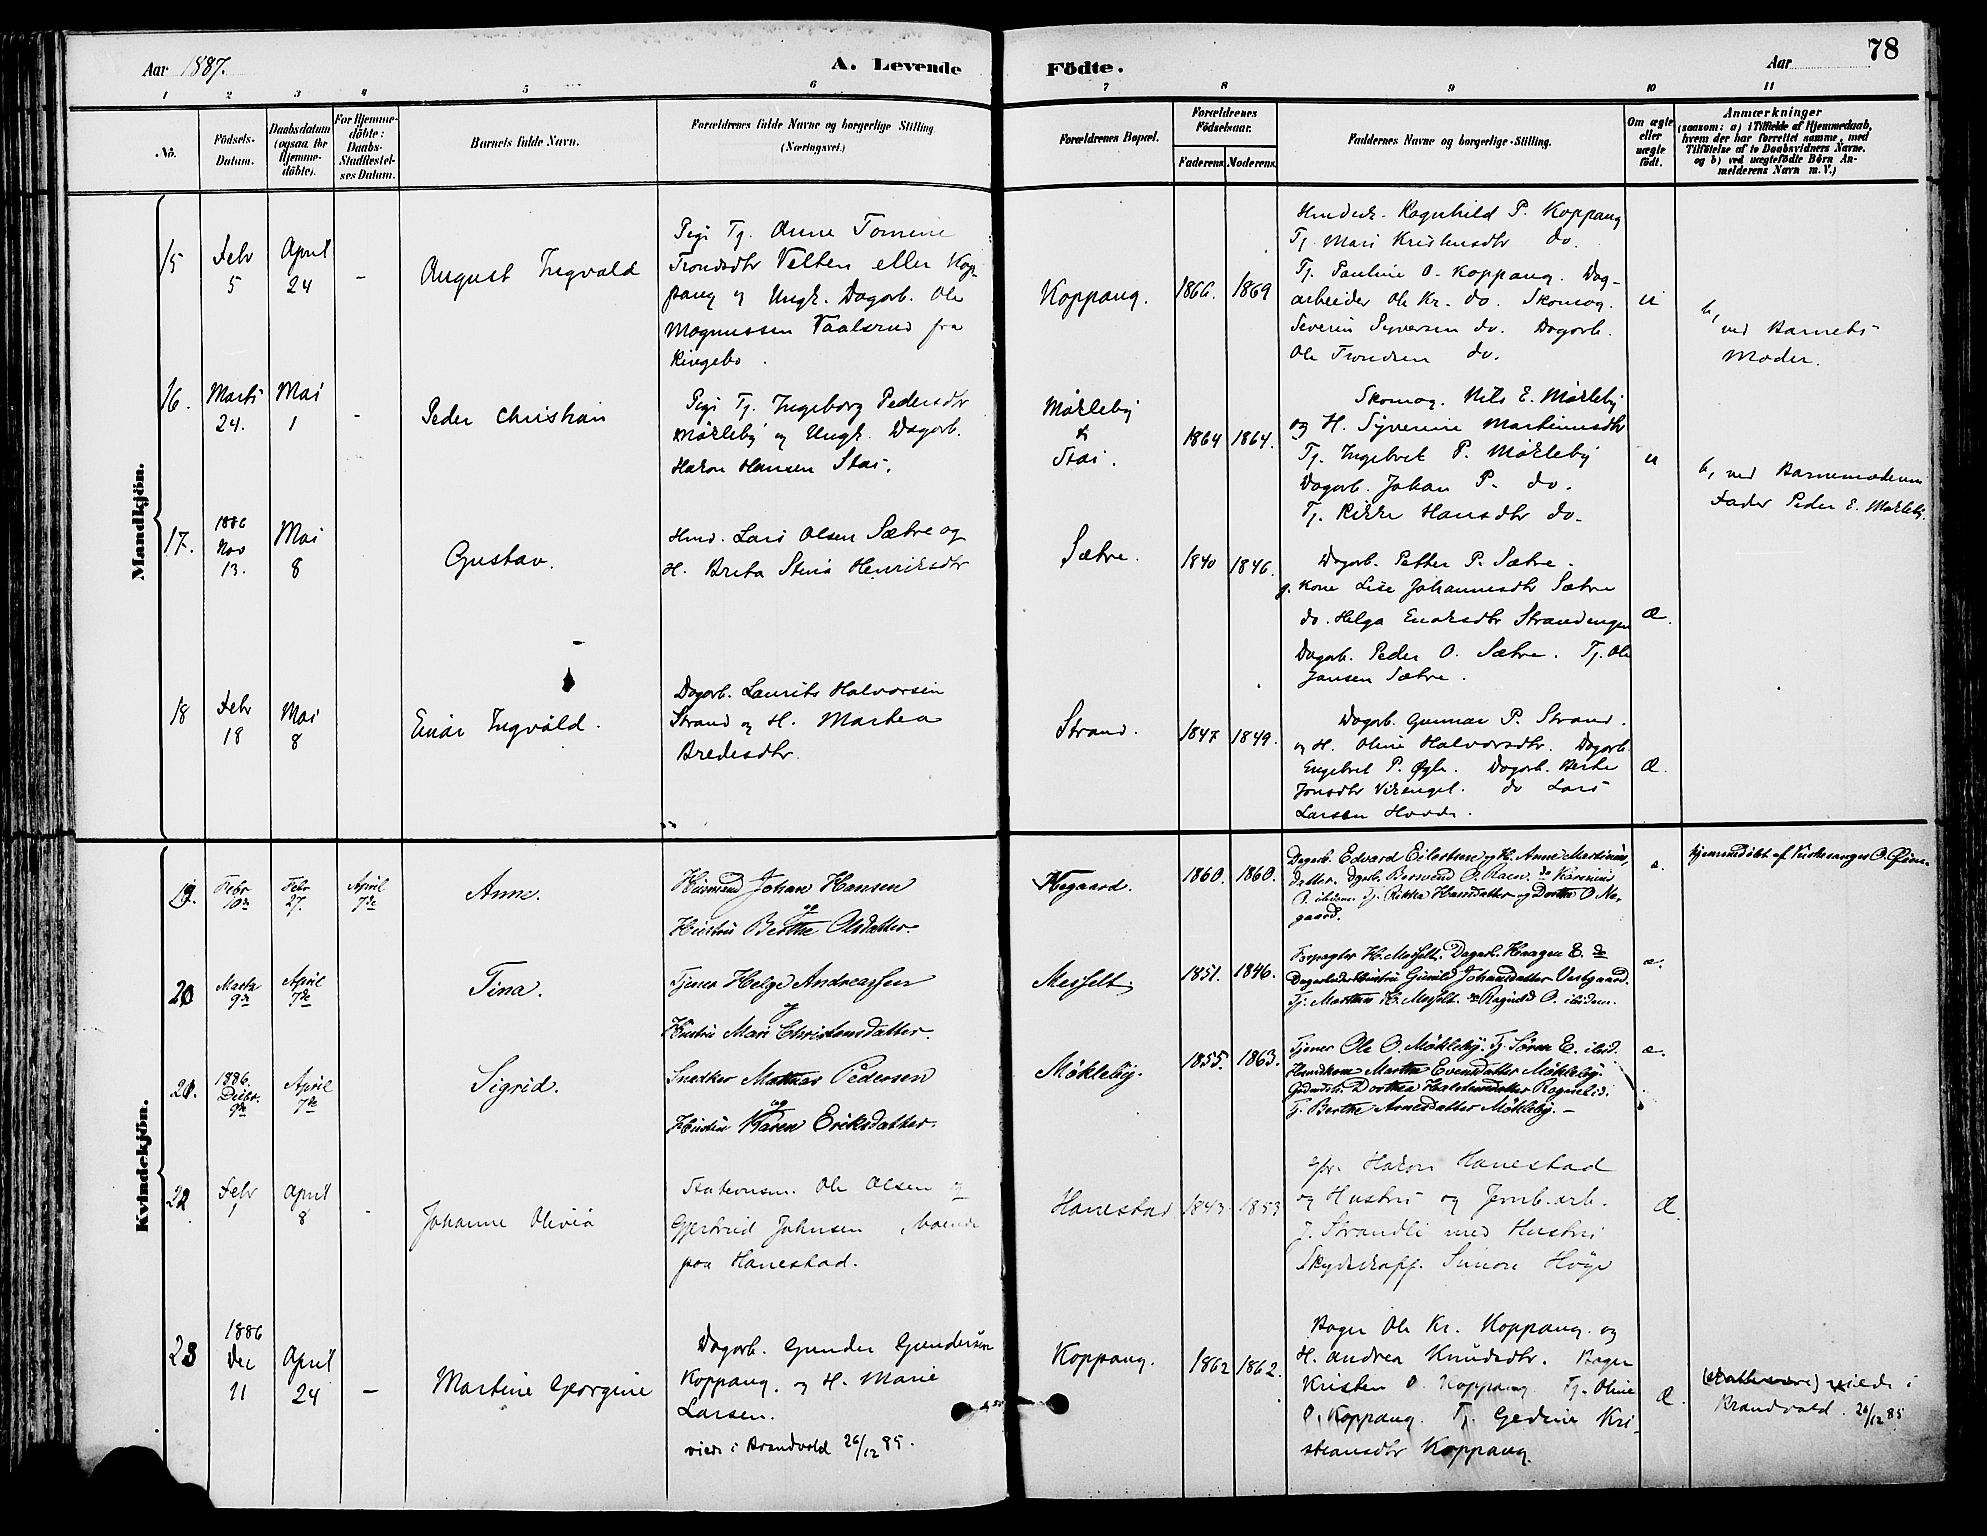 Aar 1887.
A. Levende
Födte.
Aar
78
1 2 3 4 5 6 7 8 9 10 11
No.
Födsels-
Datum.
Daabsdatum
(ogsaa for
Hjemme-
döbte).
For Hjemme-
döbte:
Daabs-
Stadfæstel-
ses Datum.
Barnets fulde Navn.
Forældrenes fulde Navne og borgerlige Stilling.
(Næringsvei.)
Forældrenes Bopæl.
Forældrenes
Födselsaar.
Faderens. Moderens.
Faddernes Navne og borgerlige Stilling.
Om ægte
eller
uægte
født.
Anmærkninger
(saasom: a) i Tilfælde af Hjemmedaab,
hvem der har forrettet samme, med
Tilföielse af to Daabsvidners Navne.
og b) ved uægtefödte Börn An-
melderens Navn m. V.)
Mandkjön.
15
Febr
5
April
24
-
August Ingvald
Pigi Tj. Anne Tomine
Trondsdtr Velten eller Kop-
pang og Ungk. Dagarb. Ole
Magnussen Vaalsrud fra
Ringebo.
Koppang.
1866. 1869
Ragnhild P. Koppang
Tj. Mari Kristensdtr do.
Tj. Pauline O. Koppang. Dag-
arbeider Ole Kr. do. Skomag.
Severin Syversen do. Dagarb.
Ole Trondsen do.
u
b, ved Barnets
Moder.
16.
Marts
24.
Mai
1
-
Peder Christian
Pigi Tj. Ingeborg Pedersdtr
Møkleby og Ungk. Dagarb.
Hakon Hansen Stai.
Møkleby
&
Stai.
1864 1864.
Skomag. Nils E. Møkleby
og H. Syverine Martinusdtr
Tj. Ingebret P. Møkleby
Dagarb. Johan P. do.
Tj. Rikke Hansdtr do.
u
b, ved Barnemoderens
Fader Peder E. Møkleby.
17.
1886
Nov
13.
Mai
8
Gustav.
Hmd. Lars Olsen Sætre og
H. Brita Stina Henriksdtr
Sætre.
1840 1846.
Dagarb. Petter P. Sætre.
g. Kone Lise Johannesdtr Sætre
do. Helga Enoksdtr Strandengen
Dagarb. Peder O. Sætre. Tj. Ole
Jansen Sætre.
Æ.
18
Febr
18
Mai
8
Einar Ingvald.
Dagarb. Laurits Halvorsen
Strand og H. Martea
Bredesdtr.
Strand.
1847 1849.
Dagarb. Gunnar P. Strand.
og H. Oline Halvorsdtr. Dagarb.
Engebret P. Øgle. Dagarb. Berte
Jonsdtr Vikenget. do Lars
Larsen Hovde.
Æ.
Kvindekjön.
19.
Febr
10de
Febr
27.
April
7de
Anne.
Husmand Johan Hansen
og
Hustru Berthe Olsdatter.
Negaard.
1860. 1860.
Dagarb. Edvard Eilertsen og H. Anne Martinus-
datter. Dgarb. Bersvend O. do Karinius
P. ibidem. Tj. Rikka Hansdatter og Dorthe O. Ne-
gaard.
æ.
Hjemmedøbt af Kirkesanger O.
20
Marts
9de
April
7de
Tina.
Tjener Helge Andreassen
og
Hustru Mari Christensdatter.
Messelt.
1851. 1846.
Forpagter H. Messelt. Dagarb. Haagen E. do
Hustru Gunild Johansdatter Vestgaard.
Tj. Marthea H. Messelt. do Ragnild O. ibidem.
æ.
21.
1886.
Decbr.
9de
April
7de
Sigrid.
Snedker Mathias Pedersen
og
Hustru Karen Eriksdatter.
Møkleby.
1855. 1863.
Tjener Ole O. Møkleby. Tj. Søren E. ibid.
Marthe Evensdatter Møkleby.
Dorthea Halstensdatter
Tj. Berthe Arnesdatter Møkleby. -
æ.
22
Febr
1
April
8
-
Johanne Olivia
Stationsm. Ole Olsen og
Gjertrud Johnsen, boende
paa Hanestad.
Hanestad
1843 1853
Hakon Hanestad
og Hustru og Jernb.arb.
J. Strandli med Hustru
Skydsskaff. Simon Høye
Æ.
23
1886
Dec
11
April
24
-
Martine Georgine
Dagarb. Gunder Gundersen
Koppang. og H. Marie
Larsen.
viede i Brandvold 26/12 85.
Koppang.
1862 1862.
Bager Ole Kr. Koppang. og
H. Andrea Knudsdtr. Bager
Kristen O. Koppang Tj. Oline
O. Koppang. Tj. Gedine Kri-
stiansdtr Koppang.
Æ.
viede i
Brandvold. 26/12 85